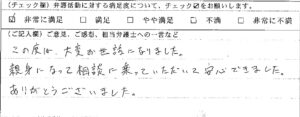 (チェック欄) 弁護活動に対する満足度について、チェック☑をお願いします。
☑ 非常に満足 □ 満足 □ やや満足 □ 不満 □ 非常に不満
(ご記入欄) ご意見、ご感想、担当弁護士への一言など
この度は、大変お世話になりました。
親身になって相談に乗っていただいて安心できました。
ありがとうございました。